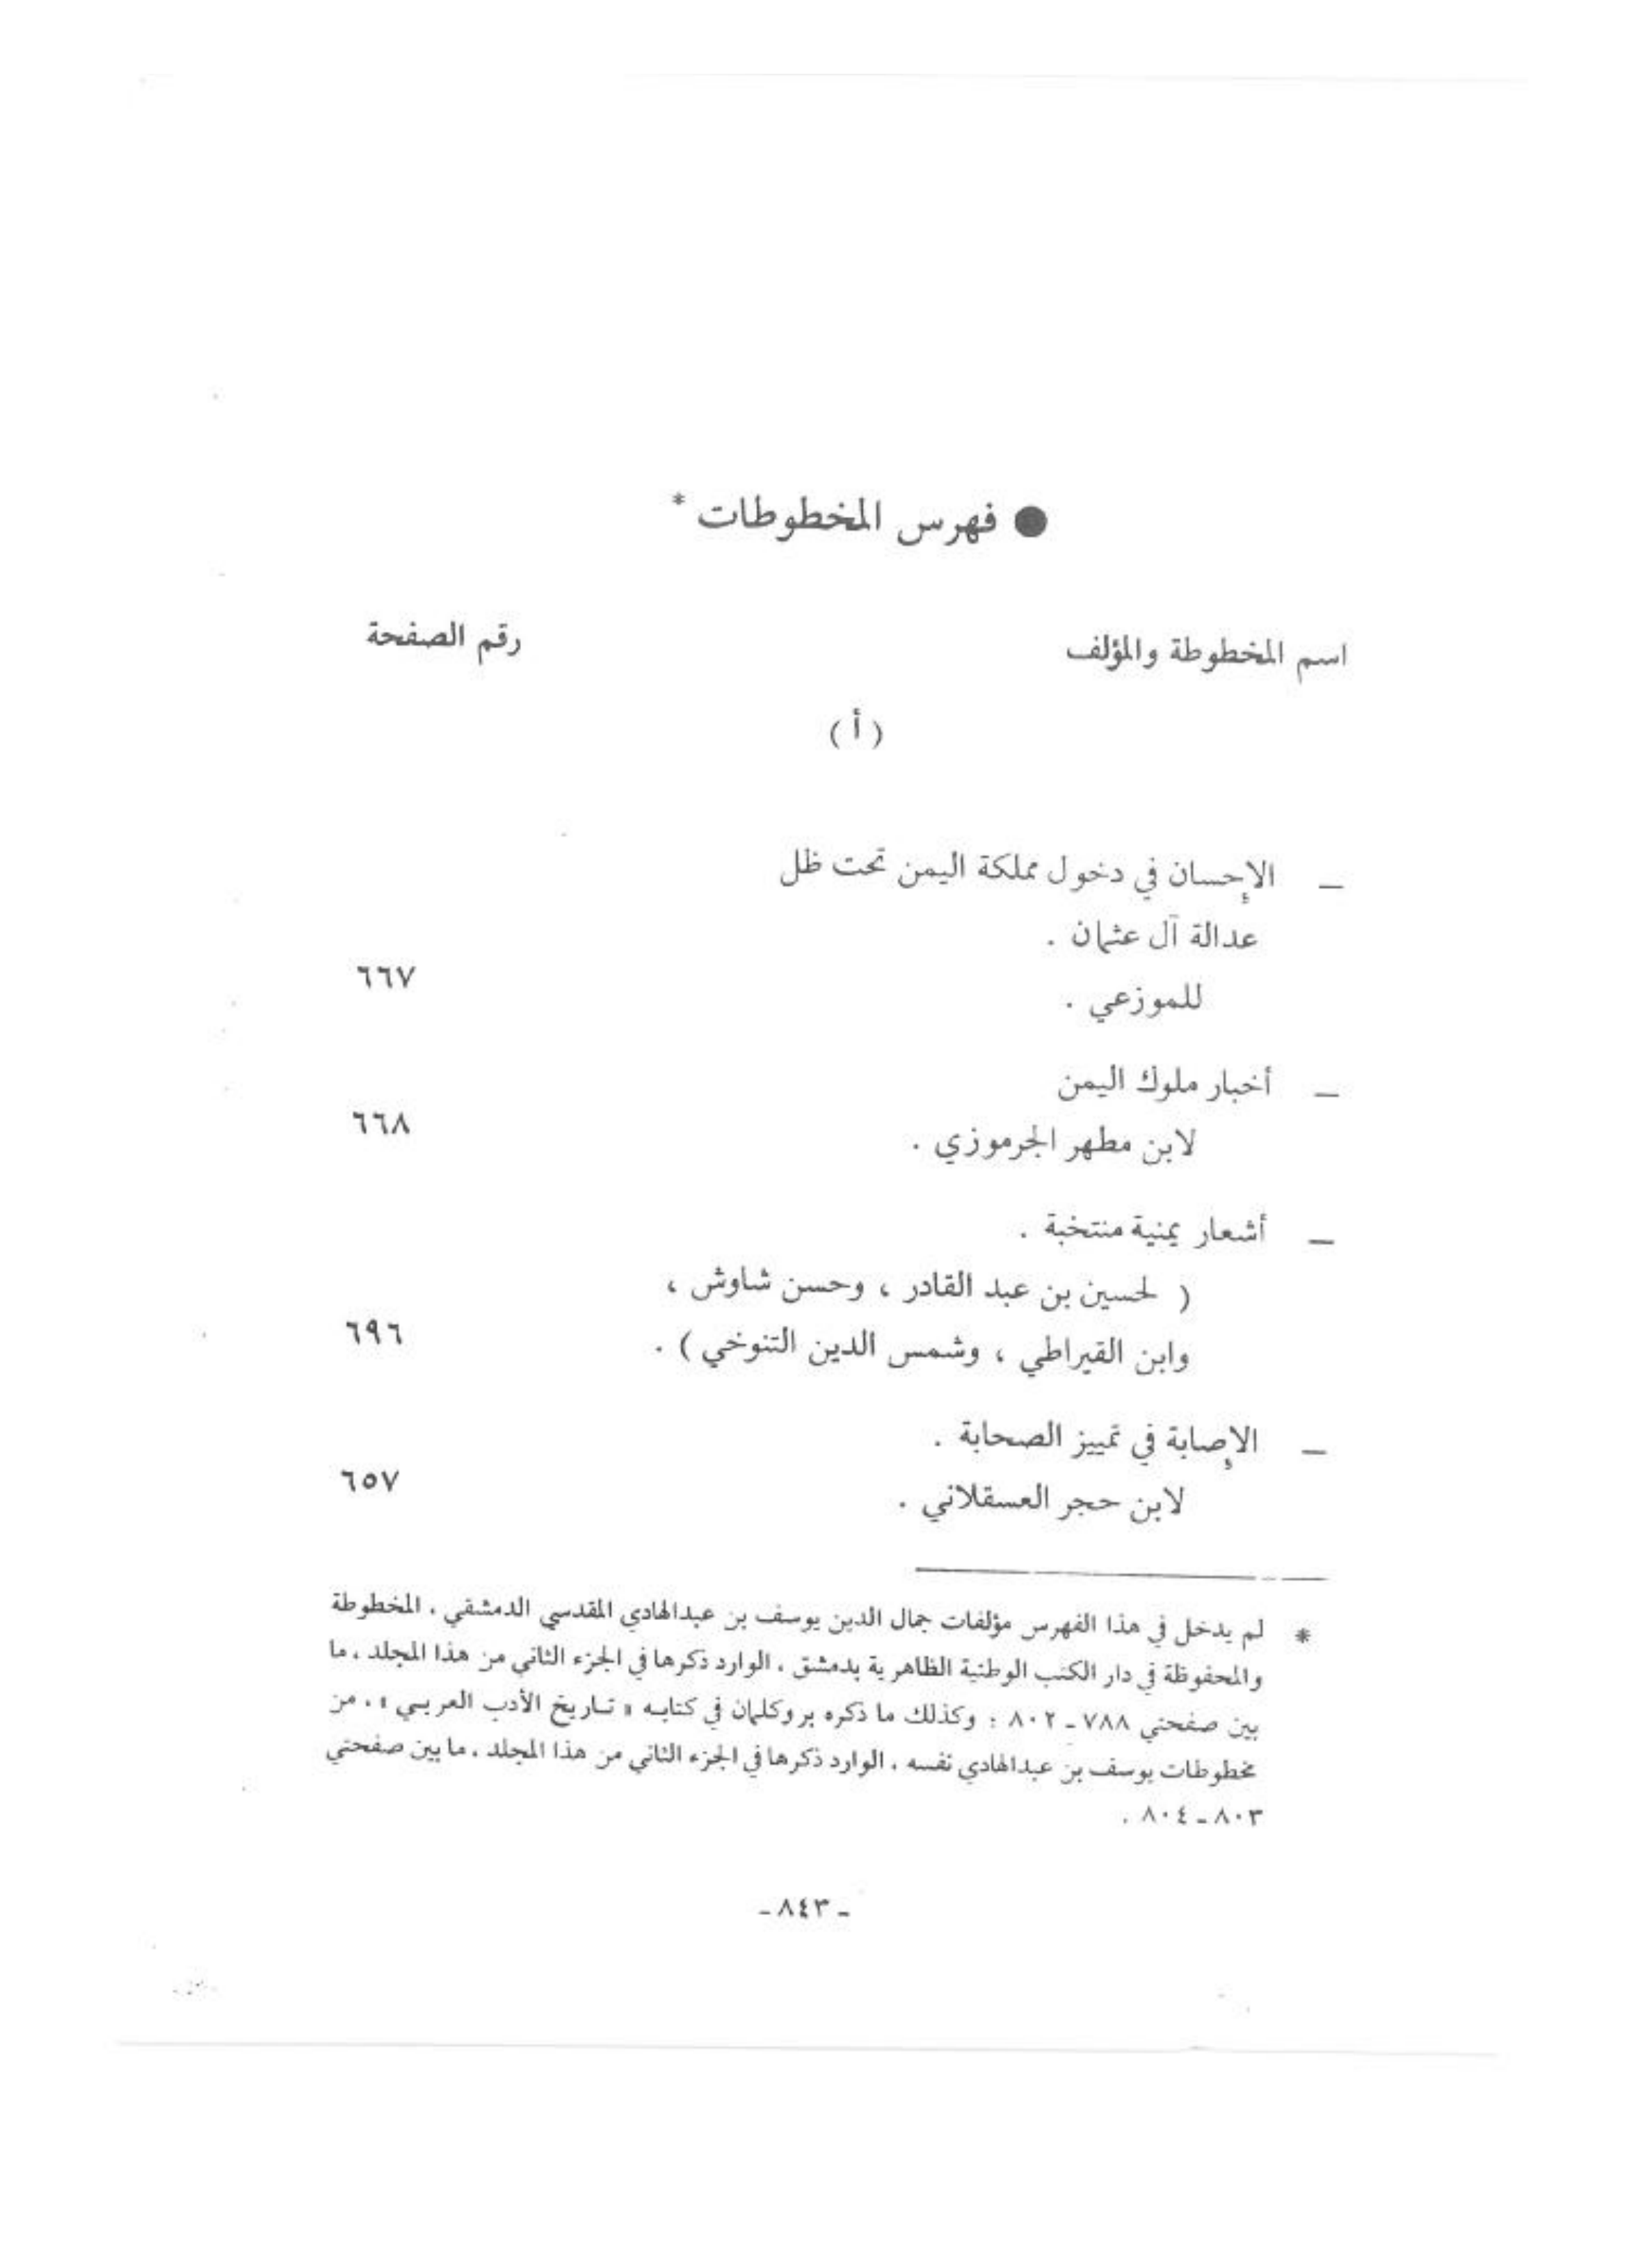 ● فهرس المخطوطات *
اسم المخطوطة والمؤلف رقم الصفحة
( أ )
ـ الإحسان في دخول مملكة اليمن تحت ظل
عدالة آل عثمان .
للموزعي . ٦٦٧
ـ أخبار ملوك اليمن
لابن مطهر الجرموزي . ٦٦٨
ـ أشعار يمنية منتخبة .
( لحسين بن عبد القادر ، وحسن شاوش ،
وابن القيراطي ، وشمس الدين التنوخي ) . ٦٩٦
ـ الإصابة في تمييز الصحابة .
لابن حجر العسقلاني . ٦٥٧
* لم يدخل في هذا الفهرس مؤلفات جمال الدين يوسف بن عبدالهادي المقدسي الدمشقي ، المخطوطة
والمحفوظة في دار الكتب الوطنية الظاهرية بدمشق ، الوارد ذكرها في الجزء الثاني من هذا المجلد ، ما
بين صفحتي ٧٨٨ ـ ٨٠٢ ؛ وكذلك ما ذكره بروكلمان في كتابه « تاريخ الأدب العربي » ، من
مخطوطات يوسف بن عبدالهادي نفسه ، الوارد ذكرها في الجزء الثاني من هذا المجلد ، ما بين صفحتي
٨٠٣ ـ ٨٠٤ .
ـ ٨٤٣ ـ